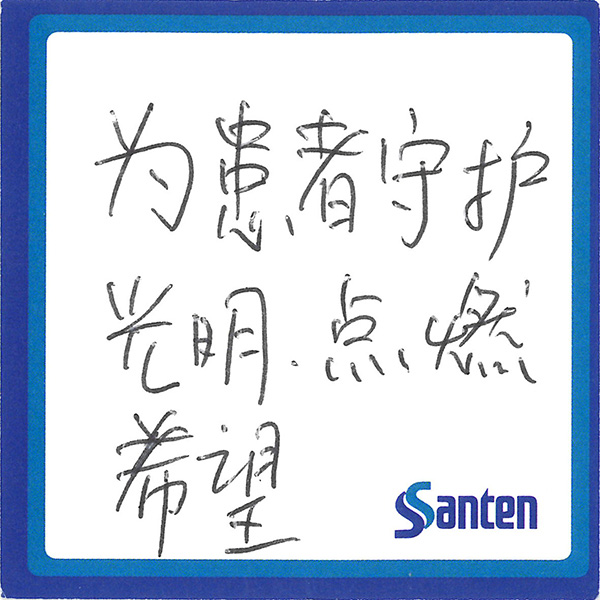 为患者守护
光明.点燃
希望
Santen